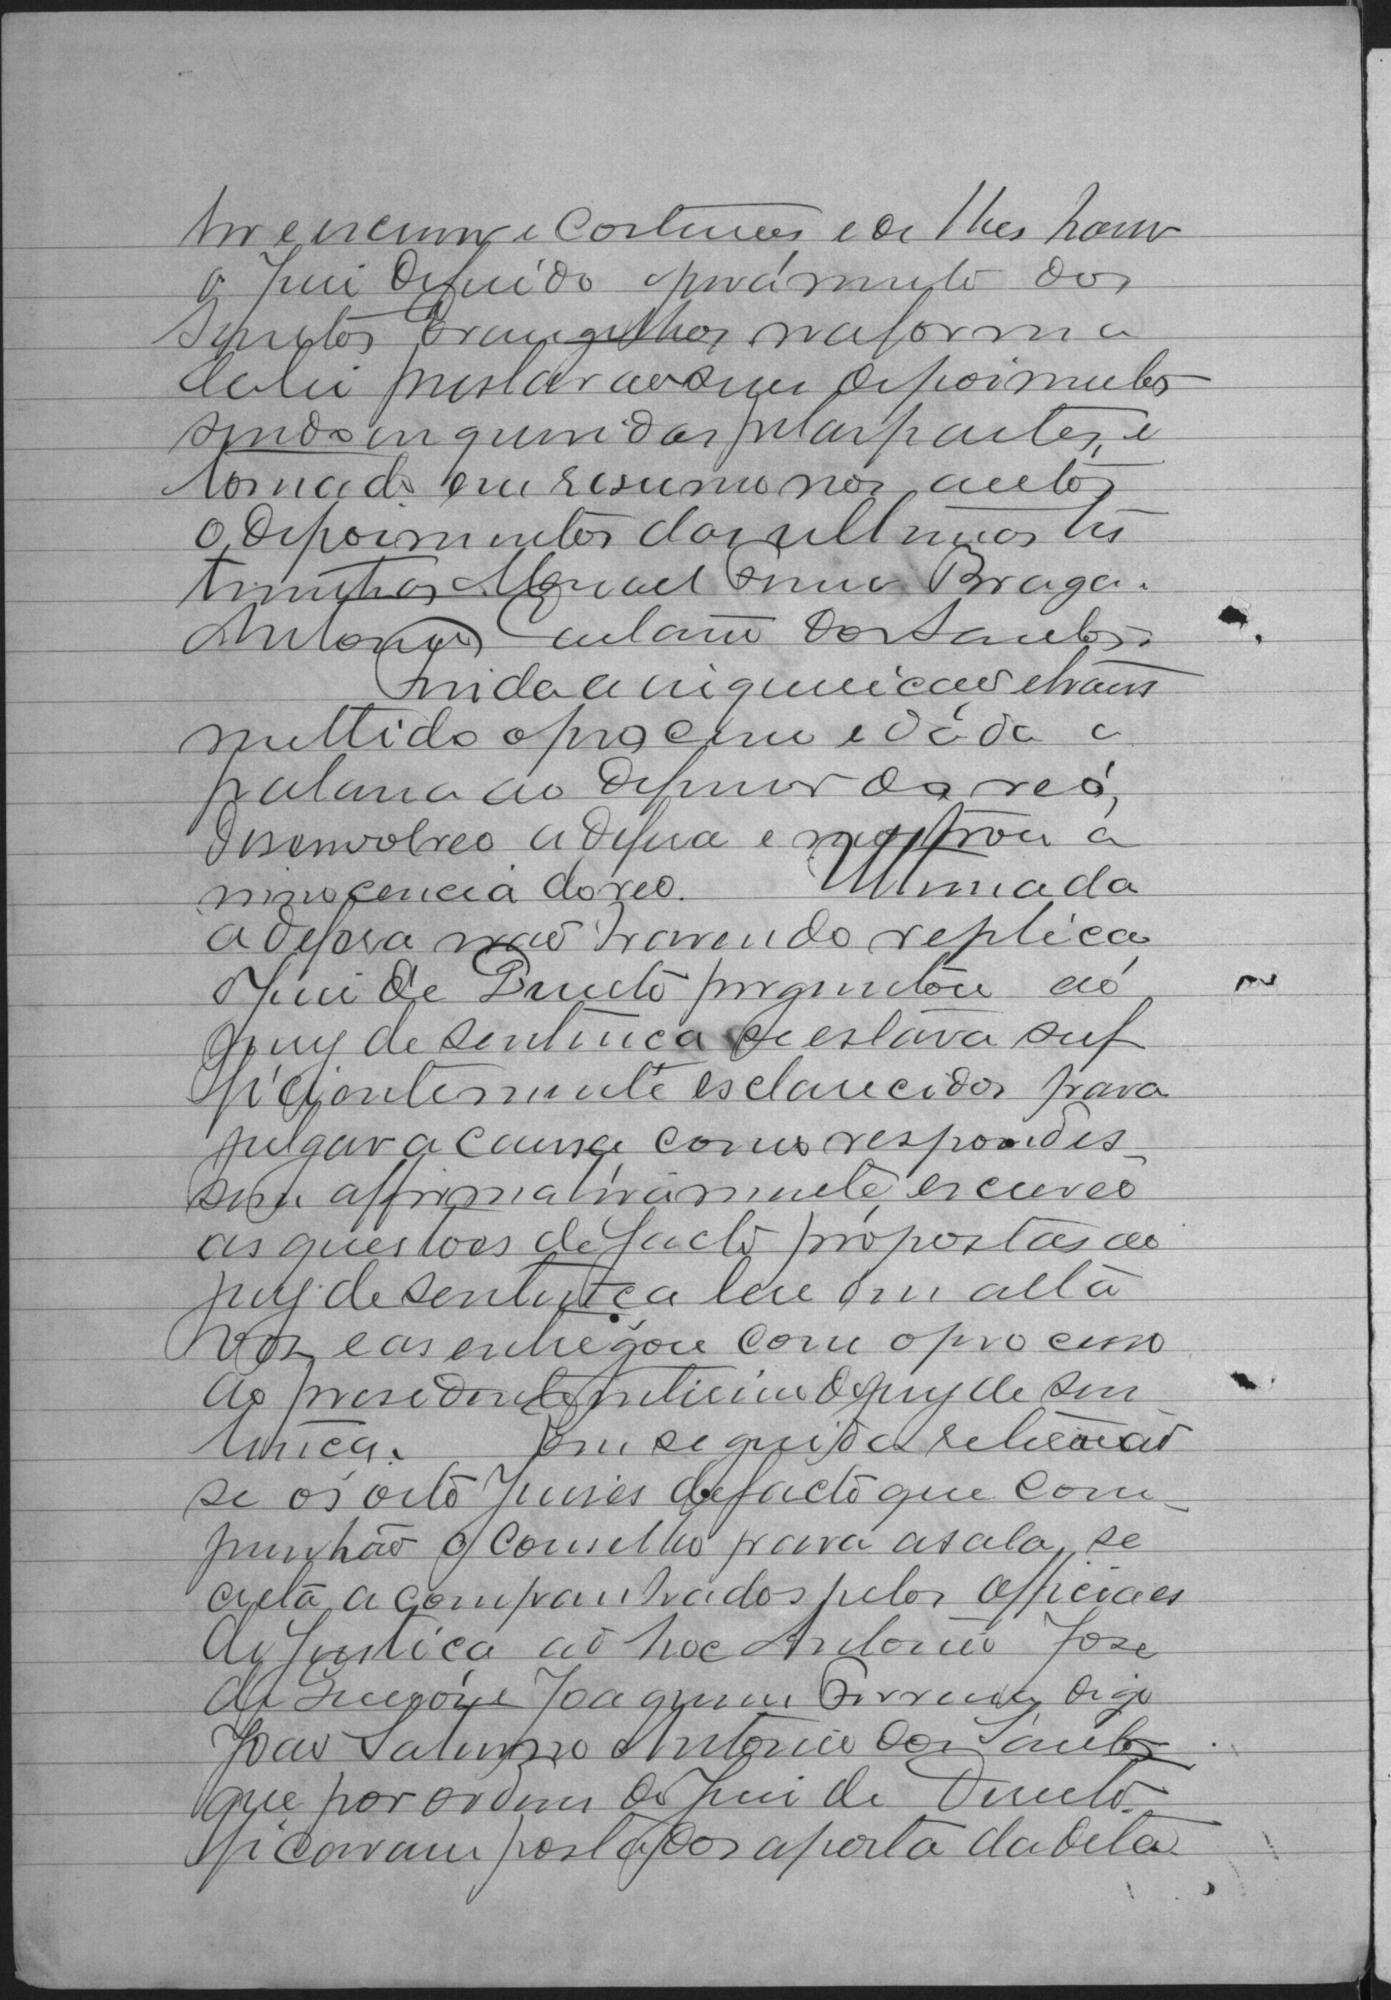 e costumes e de lhes haver
o Juiz deferido o juramento dos
Santos Evangelhos na forma
da lei prestarão seus depoimentos
sendo inqueridas pelas partes, e
tomado em resumo nos autos
o depoimentos das ultimas tes
timunhas Manoel Braga.
Antonio Caetano dos Santos.
Finda a inquirição e trans
mettido o processo e dada a
palavra ao defensor do reó,
desenvolveo a defesa e mostrou a
innocencia do reo. Ultimada
a defesa não havendo replica
o Juiz de Direito perguntou ao
jury de sentença se estava suf
ficientemente esclarecidos para
julgar a causa, como respondes_
sem affirmativamente, escreveo
as questões de facto propostas ao
jury de sentença leu em alta
voz e as entregou com o processo
ao presidente interino do jury de sen
tença. Em seguida retirarão
se os oito Juises de facto que com_
punhão o Conselho para a sala se
creta acompanhados pelos officiaes
de Justiça ad hoc Antonio Jose
de Joaquim Ferreira, digo
João Antonio dos Santos
que por ordem do Juiz de Direito
ficaram postados a porta da dita